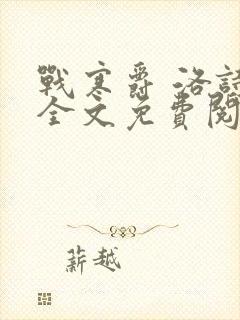 戰寒爵 洛
全文免費閱
薪越